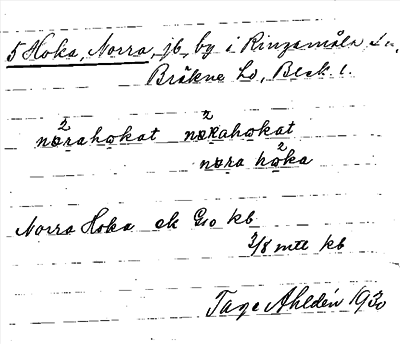 5 Hoka, Norra, jb, by i Ringamåla sn,
Bräkne hd, Blek. l.
2 2
nørahokat nørahokat
2
nøra hoka
Norra Hoka ek Gro kb
2/8 mtl kb
Tage Ahldén 1930